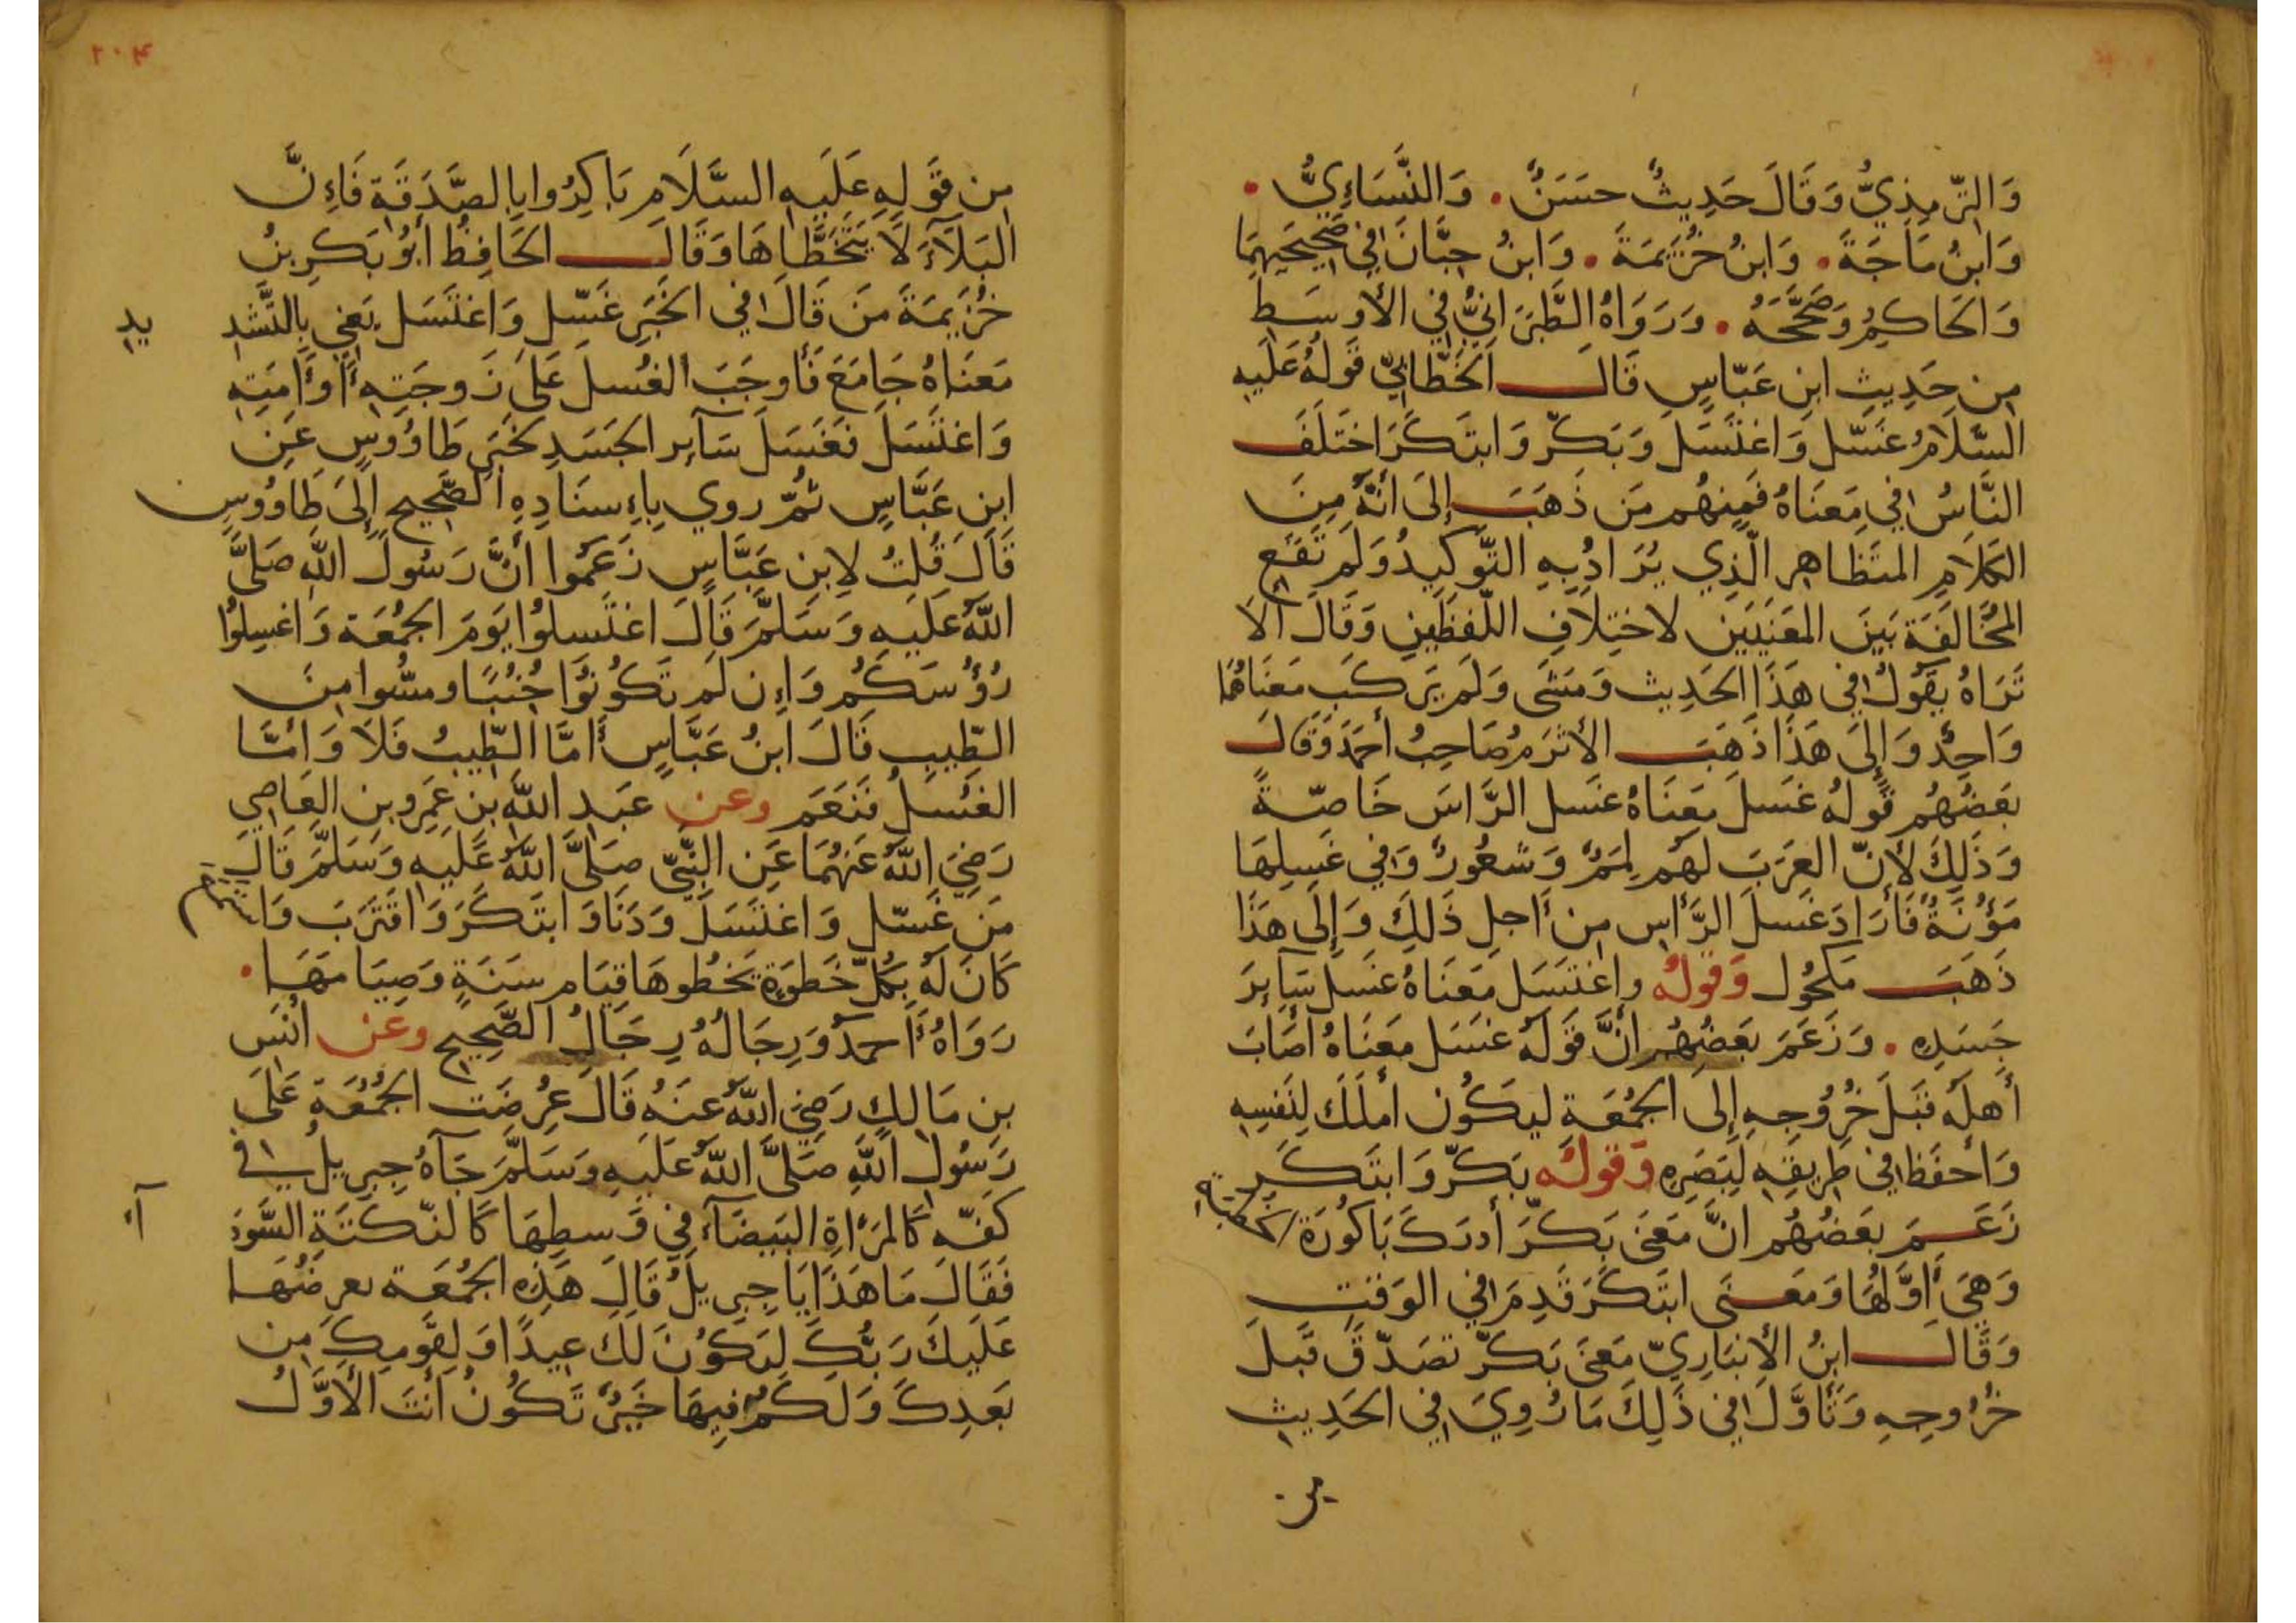 وَالتِّرمِذِيُّ وَقَالَ حَدِيثٌ حسَنٌ . وَالنَّسَاءِيُّ .
وَابنُ مَاجَةَ . وَابنُ خُزَيمَةَ . وَابنُ حِبَّانَ فِي صَحِيحَيهِمَا
وَالحَاكِمُ وَصَحَّحَهُ . وَرَوَاهُ الطَّبَرَانِيُّ فِي الأَوسَطِ
مِن حَدِيثِ ابنِ عَبَّاسٍ قَالَ الخَطَّابِيّ قَولُهُ عَلَيهِ
السَّلَامُ غَسَّل وَاغتَسَلَ وَبَكَّر وَابتَكَرَ اختَلَفَ
النَّاسُ فِي مَعنَاهُ فَمِنهُم مَن ذَهَبَ إلَى أنَّهُ مِنَ
الكَلَامِ المتَظَاهِرِ الَّذِي يُرَادُ بِهِ التَّوكِيدُ وَلَم تَقَعِ
المُخَالَفَة بَينَ المَعنَيَين لاختِلَافِ اللَّفظَينِ وَقَالَ ألَا
تَرَاهُ يَقُولُ فِي هَذَا الحَدِيث وَمَشَى وَلَم يَركَب مَعنَاهُمَا
وَاحِدٌ وَإِلَى هَذَا ذَهَبَ الأَثرَمُ صَاحِبُ أحمَدَ وَقَالَ
بَعضُهُم قَولُهُ غَسَلَ مَعنَاهُ غسَل الرَّاسَ خَاصّةً
وَذَلِكَ لأَنّ العَرَبَ لَهُم لِمَمٌ وَشعُورٌ وَفِي غَسلِهَا
مَؤُنَةٌ فَأَرَادَ غَسلَ الرَّأسِ مِن أَجلِ ذَلِكَ وَإِلَى هَذَا
ذَهَبَ مَكحُول وَقَولُه وَاغتَسَلَ مَعنَاهُ غسَلَ سَآئِرَ
جَسَدِهِ . وَزَعَمَ بَعضُهُم أنَّ قَولَهُ غسَلَ مَعنَاهُ أصَابَ
أَهلَهُ قَبلَ خُرُوجِهِ إِلَى الجُمُعَةِ لِيَكُون أملَكَ لِنَفسِهِ
وَأحفَظ فِي طَرِيقِهِ لِبَصَرِهِ وَقَولُه بَكَّر وَابتَكَرَ
زَعَمَ بَعضُهُم انَّ مَعنَى بَكَّرَ أدرَكَ بَاكُورَةَ الخطبَةِ
وَهِيَ أَوَّلُهَا وَمَعنَى ابتَكَرَ قَدِمَ فِي الوَقتِ
وَقَالَ ابنُ الأَنبَارِيّ مَعنَى بَكَّر تصَدَّقَ قَبلَ
خُرُوجِهِ وَتَأَوَّلَ فِي ذَلِكَ مَا رُوِيَ فِي الحَدِيثِ
٢٠٤
مِن قَولِهِ عَلَيهِ السَّلَامِ بَاكِرُوا بِالصَّدَقَةِ فَإِنَّ
البَلَآءَ لَا يَتَخَطَّاهَا وَقَالَ الحَافِظُ أبُو بَكرِ بنُ
خُزَيمَةَ مَن قَالَ فِي الخَبَرِ غَسَّل وَاغتَسَل يَعنِي بِالتَّشدِيدِ
مَعنَاهُ جَامَعَ فَأَوجَبَ الغُسلَ عَلَى زَوجَتِهِ أَو أَمَتِهِ
وَاغتَسَلَ فغَسَلَ سَآئِر الجَسَدِ كخَبَرِ طَاوُوسٍ عَنِ
ابنِ عَبَّاسٍ ثُمَّ روي بِإسنَادِهِ الصَّحِيحِ إِلَى طَاوُوسٍ
قَالَ قُلتُ لِابنِ عَبَّاسٍ زَعَمُوا أَنَّ رَسُولَ اللَّهِ صَلَّى
اللَّهُ عَلَيهِ وَسَلَّمَ قَالَ اغتَسِلُوا يَومَ الجُمُعَةِ وَاغسِلُوا
رُؤُسَكُم وَإِن لَم تَكُونُوا جُنُبًا وَمسُّوا مِنَ
الطِّيبِ قَالَ ابنُ عَبَّاسٍ أَمَّا الطِّيبُ فَلَا وَأَمَّا
الغُسلُ فَنَعَم وعن عَبدِ اللَّهِ بنِ عَمرِو بنِ العَاصِي
رَضِيَ اللَّهُ عَنهُمَا عَنِ النَّبِيّ صَلَّى اللَّهُ عَلَيهِ وَسَلَّمَ قَالَ
مَن غَسَّل وَاغتَسَلَ وَدَنَا وَابتَكَرَ وَاقتَرَبَ وَاستَمَعَ
كَانَ لَهُ بِكُلّ خَطوَةٍ يَخطُوهَا قِيَام سَنَةٍ وَصِيَامَهَا .
رَوَاهُ أَحمَدُ وَرِجَالُهُ رِجَالُ الصَّحِيحِ وعن أنَس
بنِ مَالِكٍ رَضِيَ اللَّهُ عَنهُ قَالَ عُرِضَت الجُمُعَةُ عَلَى
رَسُولِ اللَّهِ صَلَّى اللَّهُ عَلَيهِ وَسَلَّمَ جَآءَهُ جِبرِيلُ فِي
كَفّهِ كَالمَرأَةِ البَيضَآءِ فِي وَسطِهَا كَالنّكتَةِ السَّودَآءِ
فَقَالَ مَا هَذَا يَا جِبرِيلُ قَالَ هَذِهِ الجُمُعَة يعرِضُهَا
عَلَيكَ رَبُّكَ لِتَكُونَ لَكَ عِيدًا وَلِقَومِكَ مِن
بَعدِكَ وَلَكُم فِيهَا خَيرٌ تَكُونُ أنتَ الأَوَّلُ